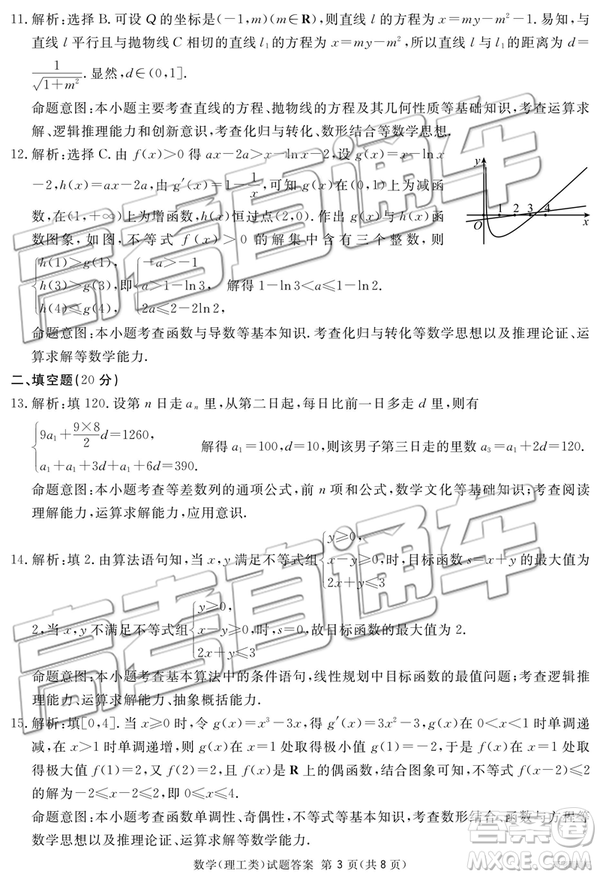 11.解析:选择 B.可设 Q 的坐标是(-1,m)(m∈R),则直线 l 的方程为 x=my-m²-1.易知,与
直线 l 平行且与抛物线 C 相切的直线 l₁ 的方程为 x=my-m²,所以直线 l 与 l₁ 的距离为 d=
1/√(1+m²).显然,d∈(0,1].
命题意图:本小题主要考查直线的方程、抛物线的方程及其几何性质等基础知识,考查运算求
解、逻辑推理能力和创新意识,考查化归与转化、数形结合等数学思想.
12.解析:选择 C.由 f(x)>0 得 ax-2a>x-lnx-2,设 g(x)=x-lnx
-2,h(x)=ax-2a,由 g′(x)=1-1/x,可知 g(x)在(0,1)上为减函
数,在(1,+∞)上为增函数,h(x)恒过点(2,0).作出 g(x)与 h(x)函
数图象,如图,不等式 f(x)>0 的解集中含有三个整数,则
y
1 2 3 4
O x
{h(1)>g(1), {-a>-1
h(3)>g(3),即 a>1-ln3, 解得 1-ln3<a≤1-ln2.
h(4)≤g(4), 2a≤2-2ln2,
命题意图:本小题考查函数与导数等基本知识.考查化归与转化等数学思想以及推理论证、运
算求解等数学能力.
二、填空题(20 分)
13.解析:填 120.设第 n 日走 aₙ 里,从第二日起,每日比前一日多走 d 里,则有
{9a₁+(9×8)/2 d=1260,
解得 a₁=100,d=10,则该男子第三日走的里数 a₃=a₁+2d=120.
a₁+a₁+3d+a₁+6d=390.
命题意图:本小题考查等差数列的通项公式,前 n 项和公式,数学文化等基础知识;考查阅读
理解能力,运算求解能力,应用意识.
14.解析:填 2.由算法语句知,当 x,y 满足不等式组{y≥0, x-y≥0, 2x+y≤3 时,目标函数 s=x+y 的最大值为
2,当 x,y 不满足不等式组{y≥0, x-y≥0, 2x+y≤3 时,s=0,故目标函数的最大值为 2.
命题意图:本小题考查基本算法中的条件语句,线性规划中目标函数的最值问题;考查逻辑推
理能力、运算求解能力、抽象概括能力.
15.解析:填[0,4].当 x≥0 时,令 g(x)=x³-3x,得 g′(x)=3x²-3,g(x)在 0<x<1 时单调递
减,在 x>1 时单调递增,则 g(x)在 x=1 处取得极小值 g(1)=-2,于是 f(x)在 x=1 处取
得极大值 f(1)=2,又 f(2)=2,f(x)是 R 上的偶函数,结合图象可知,不等式 f(x-2)≤2
的解为-2≤x-2≤2,即 0≤x≤4.
命题意图:本小题考查函数单调性、奇偶性,不等式等基本知识,考查数形结合、函数与方程等
数学思想以及推理论证、运算求解等数学能力.
数学(理工类)试题答案 第 3 页(共 8 页)
高考直通车
高考直通车